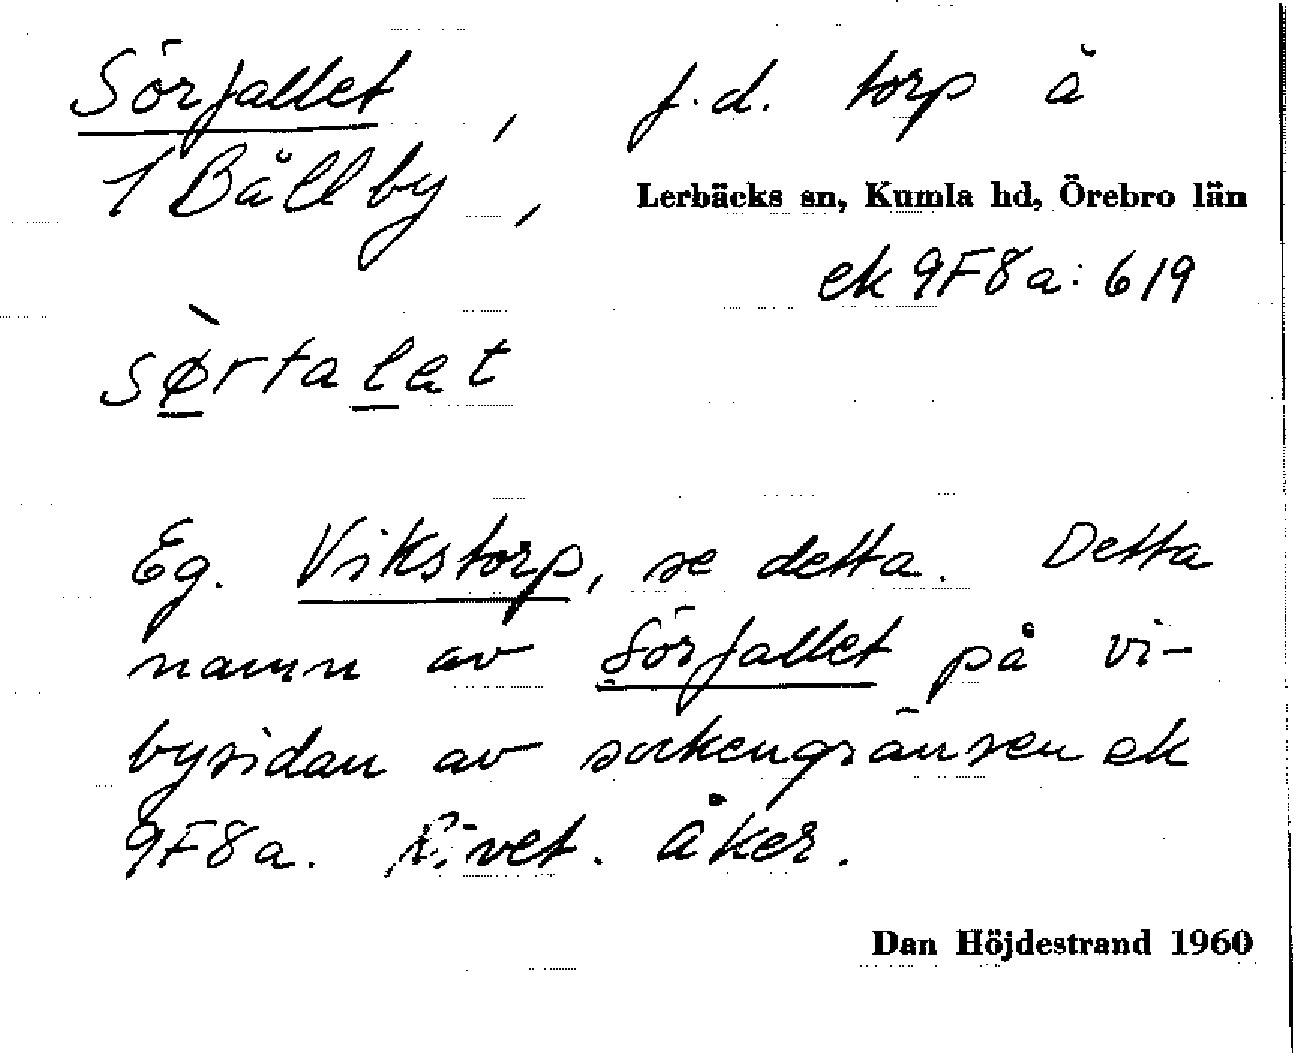 Sörfallet, f.d. torp å
1 Bållby,
Lerbäcks sn, Kumla hd, Örebro län
ek 9F8a: 619
sø̀rfalat
Eg. Vikstorp, se detta. Detta
namn av Sörfallet på vi-
bysidan av sockengränsen ek
9F8a. Rivet. Åker.
Dan Höjdestrand 1960